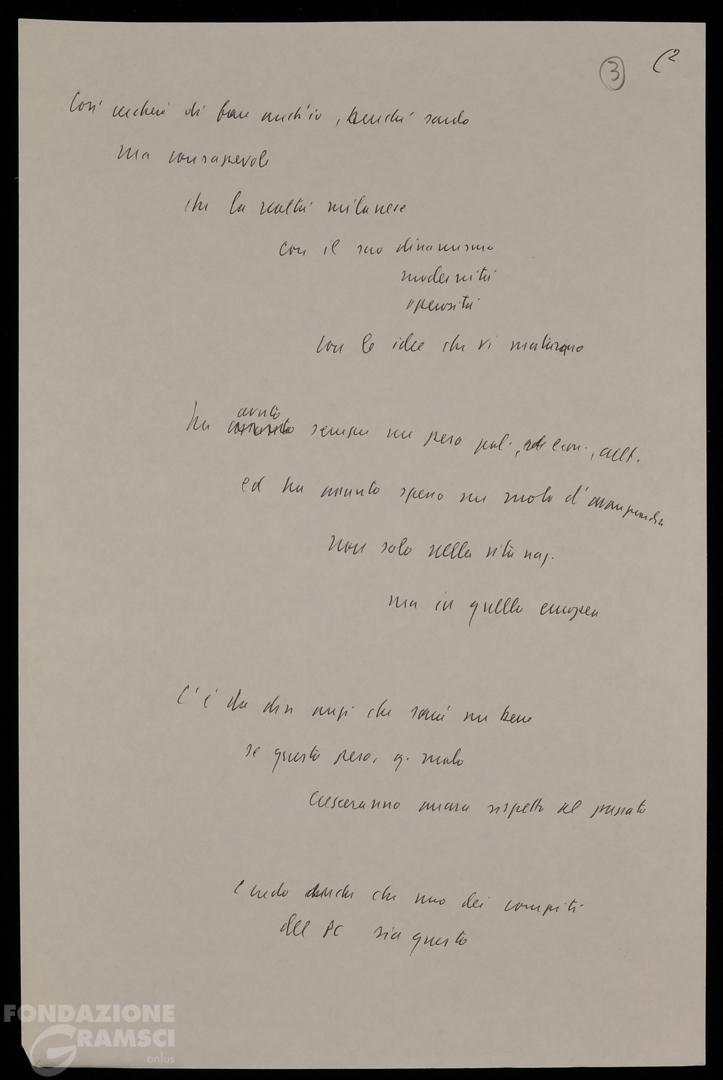 3 (2
Così cercherò di fare anch'io, benché sardo
ma consapevole
che la realtà milanese
con il suo dinamismo
modernità
operosità
con le idee che vi maturano
avuto
ha sempre un peso pol., econ., cult.
ed ha assunto spesso un ruolo d'avanguardia
non solo nella vita naz.
ma in quella europea
C'è da dire anzi che sarà un bene
se questo peso, q. ruolo
cresceranno ancora rispetto al passato
E credo anche che uno dei compiti
del PC sia questo
FONDAZIONE
GRAMSCI
onlus